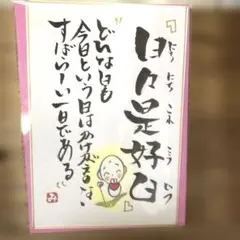 『日々是好日』
にち にち これ こう じつ
どんな日も
今日という日はかけがえない
すばらしい一日である〟